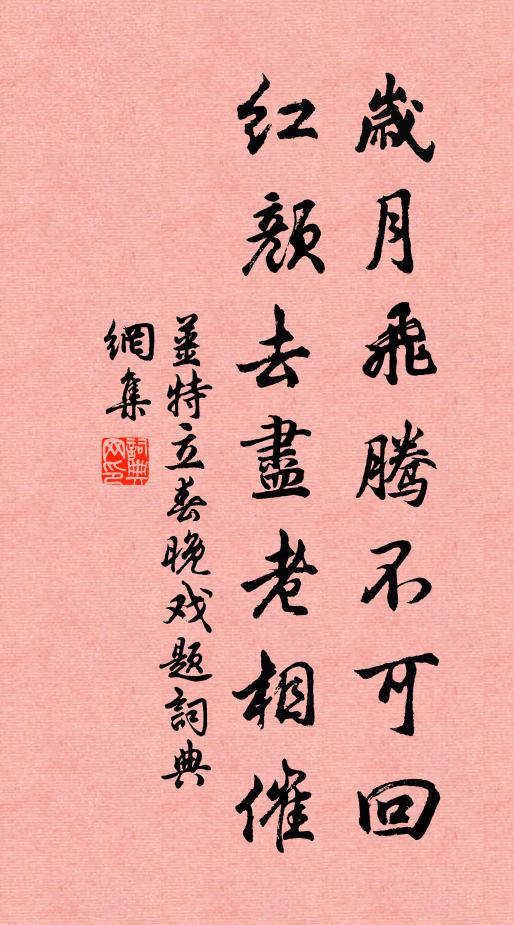 歲月飛騰不可回
紅顏去盡老相催
姜特立春晚戏题詞典
網集
詞典
网印